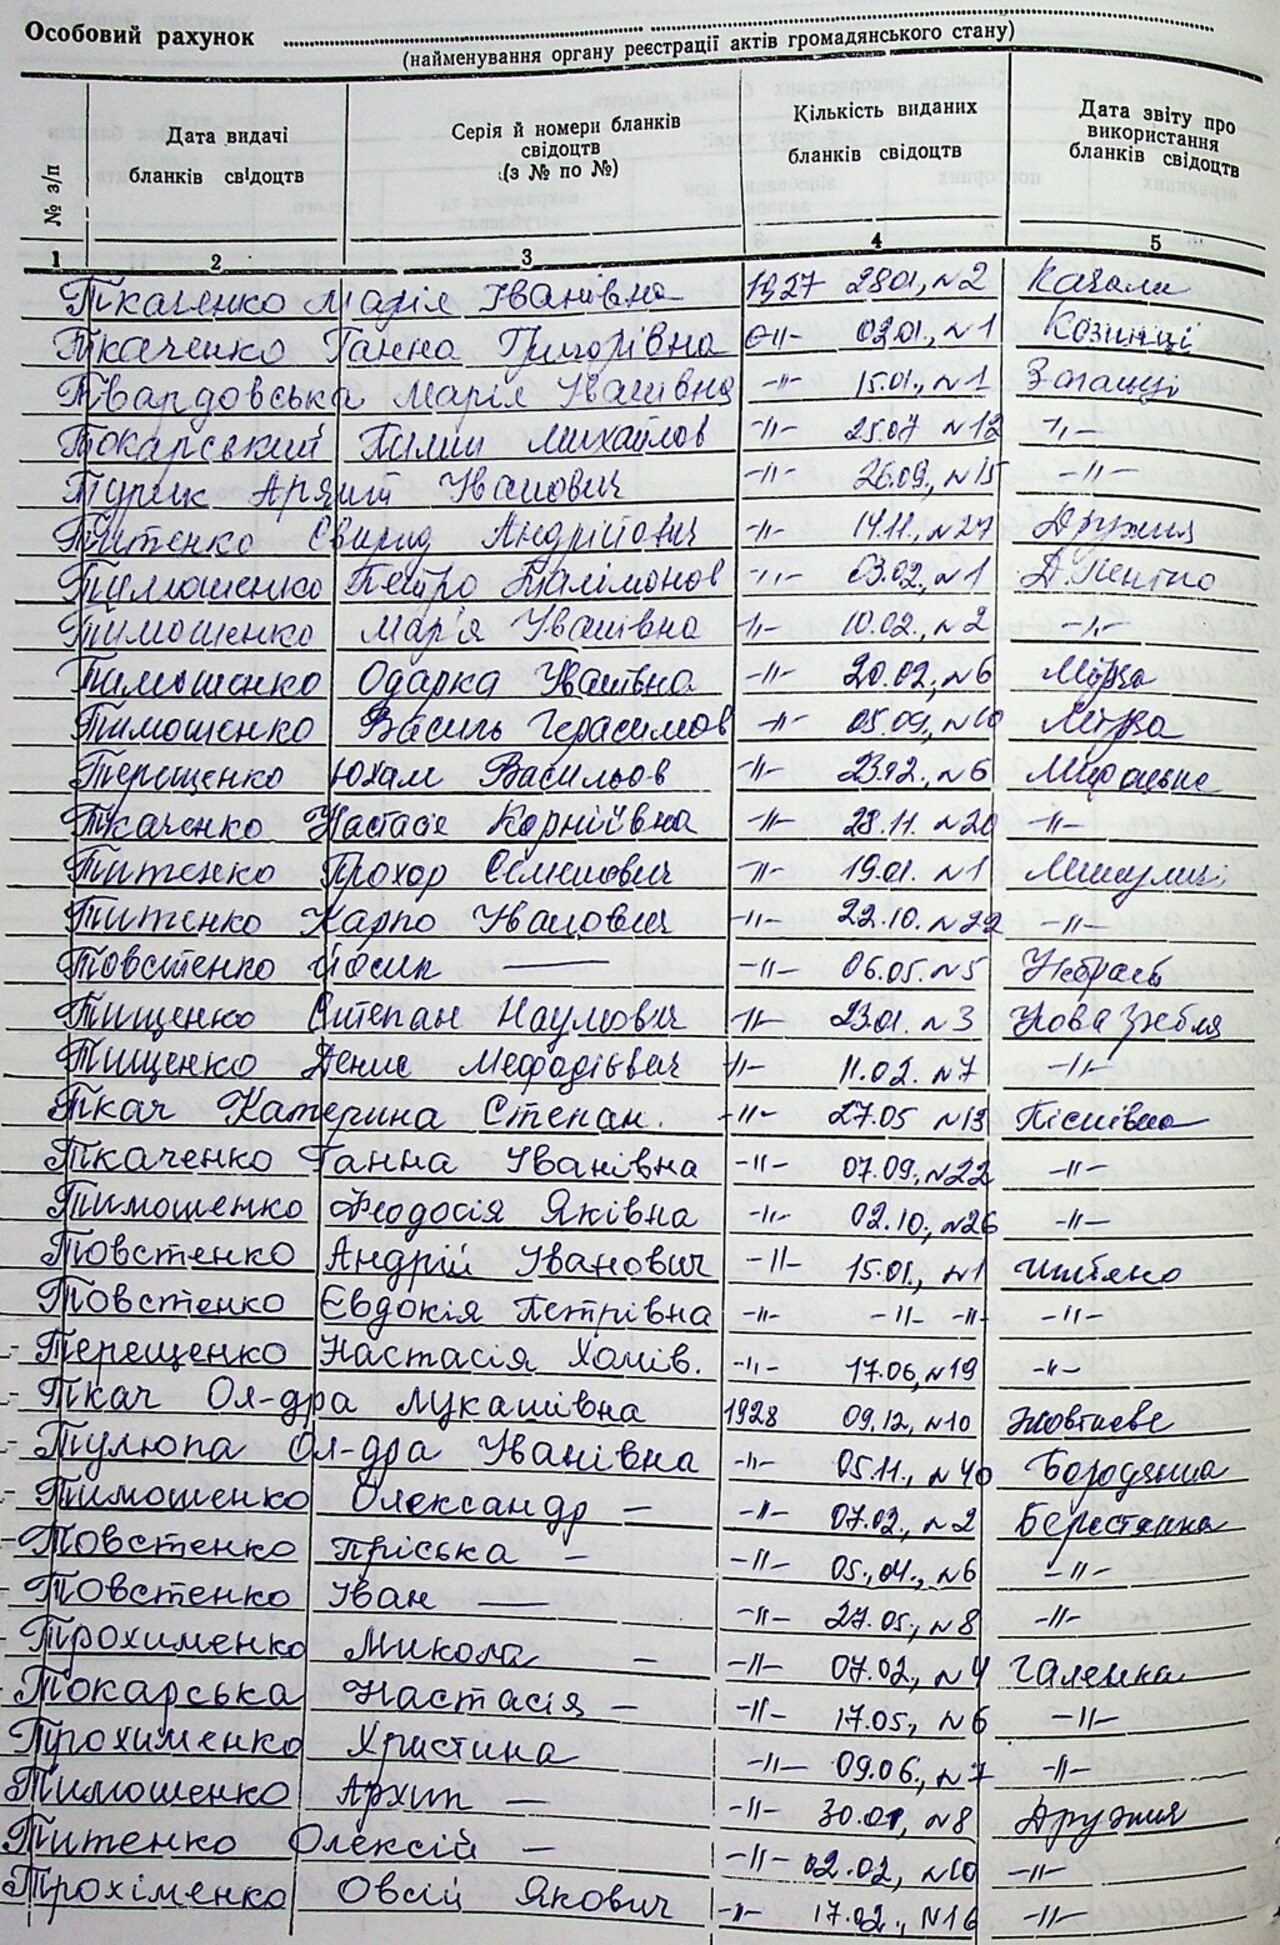 Особовий рахунок
(найменування органу реєстрації актів громадянського стану)
№ з/п Дата видачі бланків свідоцтв Серія й номери бланків свідоцтв (з № по №) Кількість виданих бланків свідоцтв Дата звіту про використання бланків свідоцтв
1 2 3 4 5
Ткаченко Марія Іванівна 1927 28.01, №2 Качали
Ткаченко Ганна Григорівна -11- 03.01., №1 Козинці
Твардовська Марія Іванівна -11- 15.01., №1 Загальці
Токарський Пилип Михайлов -11- 25.07 №12 -11-
Турик Іванович -11- 26.09., №15 -11-
Титенко Свирид Андрійович -11- 14.11., №27 Дружня
Тимошенко Петро Пилімонов -11- 03.02., №1
Тимошенко Мар'я Іванівна -11- 10.02., №2 -11-
Тимошенко Одарка Іванівна -11- 20.02., №6 Мірча
Тимошенко Василь Герасимов -11- 05.09., №10 Мірча
Терещенко Юхам Васильов -11- 23.02., №6 Мироцьке
Ткаченко Настасія Корніївна -11- 28.11. №20 -11-
Титенко Прохор Семенович -11- 19.01. №1 Микуличі
Титенко Карпо Іванович -11- 22.10. №22 -11-
Товстенко Йосип — -11- 06.05. №5 Небрат
Тищенко Степан Наумович -11- 23.01. №3 Нова Гребля
Тищенко Денис Мефодієвич -11- 11.02. №7 -11-
Ткач Катерина Степан. -11- 27.05 №13 Пісківка
Ткаченко Ганна Іванівна -11- 07.09., №22 -11-
Тимошенко Феодосія Яківна -11- 02.10., №26 -11-
Товстенко Андрій Іванович -11- 15.01., №1 Шибено
Товстенко Євдокія Петрівна -11- -11- -11- -11-
Терещенко Настасія Хомів. -11- 17.06, №19 -11-
Ткач Ол-дра Лукашівна 1928 09.12, №10 Жовтневе
Тулюпа Ол-дра Іванівна -11- 05.11., №40 Бородянка
Тимошенко Олександр — -11- 07.02., №2 Берестянка
Товстенко Пріська — -11- 05.,04., №6 -11-
Товстенко Іван — -11- 27.05., №8 -11-
Трохименко Микола — -11- 07.02., №4 Галенка
Токарська Настасія — -11- 17.05., №6 -11-
Трохименко Христина -11- 09.06., №7 -11-
Тимошенко Архип — -11- 30.01, №8 Дружня
Титенко Олексій — -11- 02.02, №10 -11-
Трохіменко Овсій Якович -11- 17.02., №16 -11-